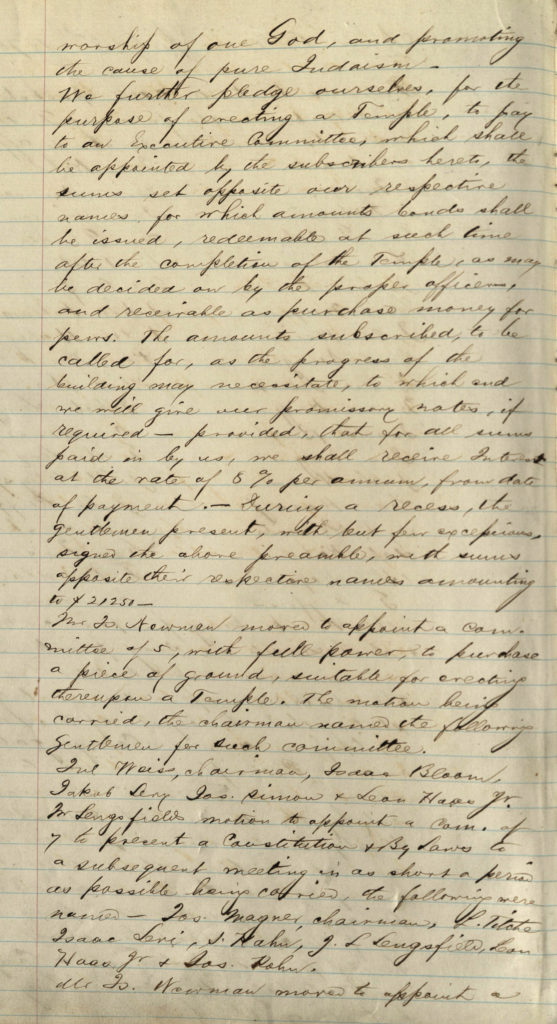 worship of one God, and promoting
the cause of pure Judaism —
We further pledge ourselves, for the
purpose of erecting a Temple, to pay
to an Executive Committee, which shall
be appointed by the subscribers hereto, the
sums set opposite our respective
names for which amounts bonds shall
be issued, redeemable at such time
after the completion of the Temple, as may
be decided on by the proper officers,
and receivable as purchase money for
pews. The amounts subscribed, to be
called for, as the progress of the
building may necessitate, to which end
we will give our promissory notes, if
required — provided, that for all sums
paid in by us, we shall receive Interest
at the rate of 8 % per annum, from date
of payment. — During a recess, the
gentlemen present, with but few excepions,
signed the above preamble, with sums
opposite their respective names amounting
to $ 21250 —
Mr Is. Newman moved to appoint a Com-
mittee of 5, with full power, to purchase
a piece of ground, suitable for erecting
thereupon a Temple. The motion being
carried, the chairman named the following
Gentlemen for such committee.
Jul Weiss, chairman, Isaac Bloom,
Jakob Levy Jos. Simon & Leon Haas Jr.
Mr Lengsfields motion to appoint a Com. of
7 to present a Constitution & By Laws to
a subsequent meeting in as short a period
as possible being carried, the following were
named — Jos. Magner, chairman, Titche
Isaac Levi, S. Hahn, J. L Lengsfield, Leon
Haas Jr & Jos. Kohn.
Mr Is. Newman moved to appoint a